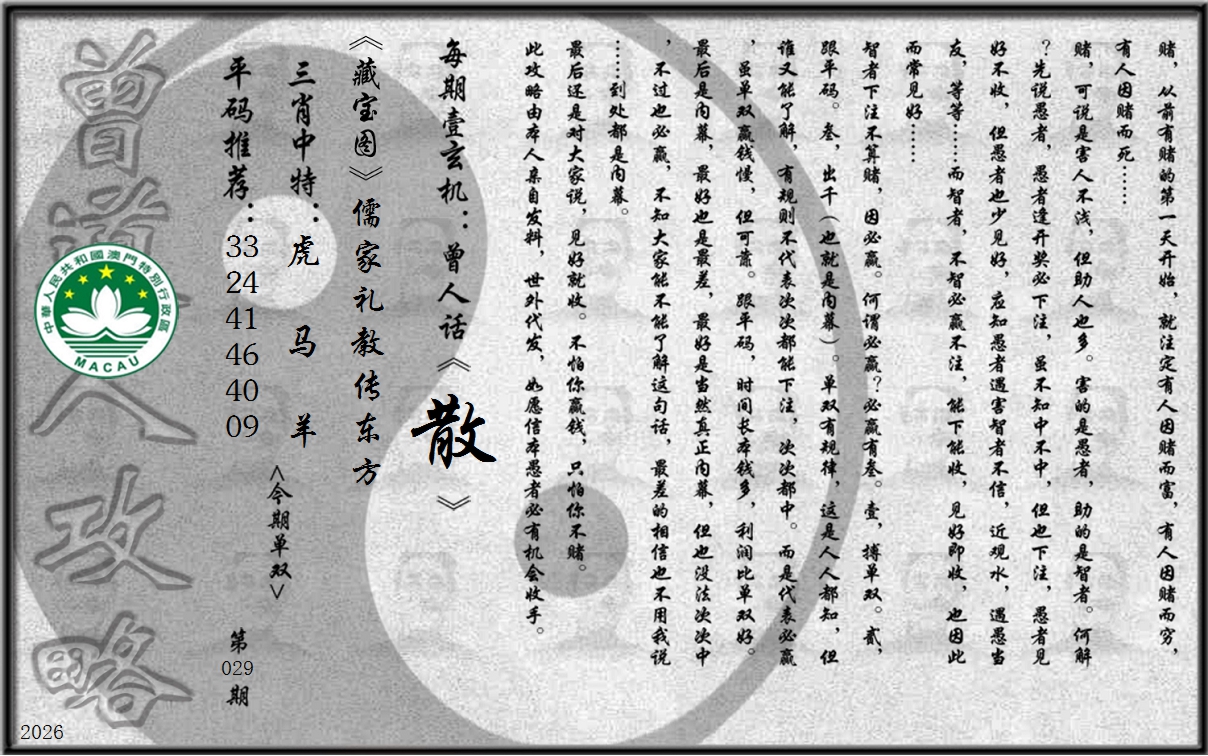 赌，从前有赌的第一天开始，就注定有人因赌而富，有人因赌而穷，
有人因赌而死……
赌，可说是害人不浅，但助人也多。害的是愚者，助的是智者。何解
？先说愚者，愚者逢开奖必下注，虽不知中不中，但也下注，愚者见
好不收，但愚者也少见好，应知愚者遇害智者不信，近观水，遇愚当
友，等等……而智者，不智必赢不注，能下能收，见好即收，也因此
而常见好……
智者下注不算赌，因必赢。何谓必赢？必赢有叁。壹，搏单双。贰，
跟平码。叁，出千（也就是内幕）。单双有规律，这是人人都知，但
谁又能了解，有规则不代表次次都能下注，次次都中。而是代表必赢
，虽单双赢钱慢，但可靠。跟平码，时间长本钱多，利润比单双好。
最后是内幕，最好也是最差，最好是当然真正内幕，但也没法次次中
，不过也必赢，不知大家能不能了解这句话，最差的相信也不用我说
……到处都是内幕。
最后还是对大家说，见好就收。不怕你赢钱，只怕你不赌。
此攻略由本人亲自发料，世外代发，如愿信本愚者必有机会收手。
每期壹玄机：曾人话《散》
《藏宝图》儒家礼教传东方
三肖中特：虎 马 羊
<今期单双>
平码推荐：33 24 41 46 40 09
第029期
曾道人攻略
中華人民共和國澳門特別行政區
MACAU
2026